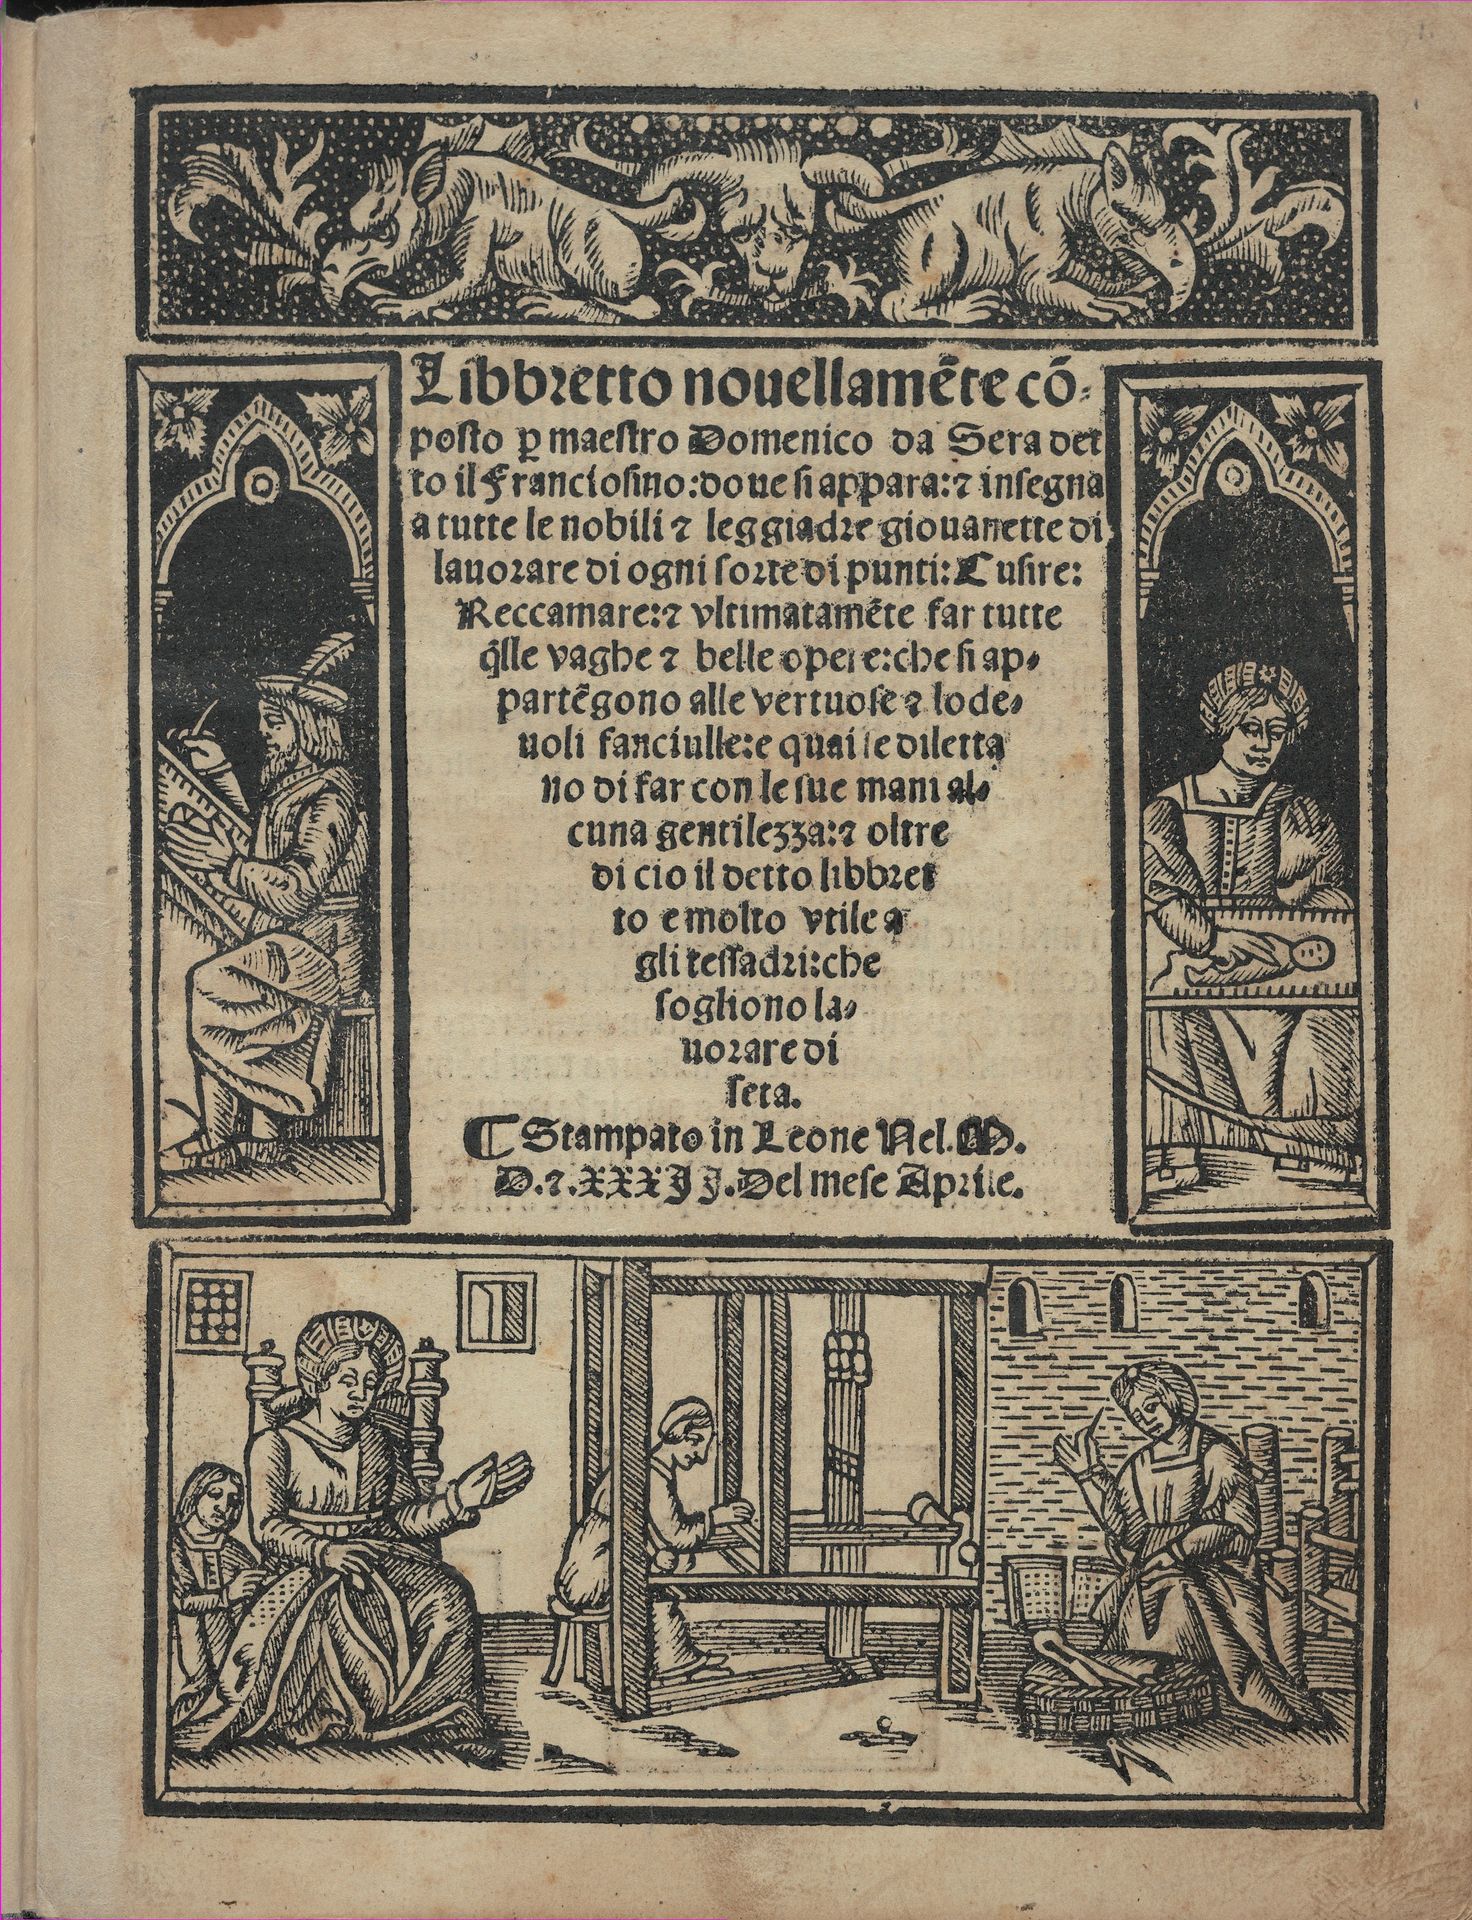 Libbretto nouellamẽte cõ⸗
posto ꝑ maestro Domenico da Sera det
to il Franciosino: doue si appara: ⁊ insegna
a tutte le nobili ⁊ leggiadre giouanette di
lauorare di ogni sorte di punti: Cusire:
Reccamare: ⁊ vltimatamẽte far tutte
q̃lle vaghe ⁊ belle opere: che si ap⸗
partẽgono alle vertuose ⁊ lode⸗
uoli fanciulle: e quai se diletta
no di far con le sue mani al⸗
cuna gentilezza: ⁊ oltre
di cio il detto libbret
to e molto vtile a
gli tessadri: che
sogliono la⸗
uorare di
seta.
¶ Stampato in Leone Nel. M.
D. ⁊. XXXII. Del mese Aprile.